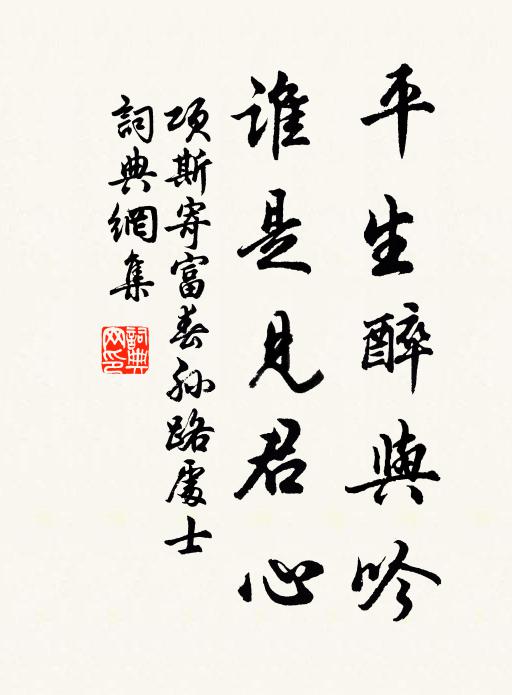 平生醉與吟
誰是見君心
項斯寄富春孫路處士
詞典網集
詞典網印